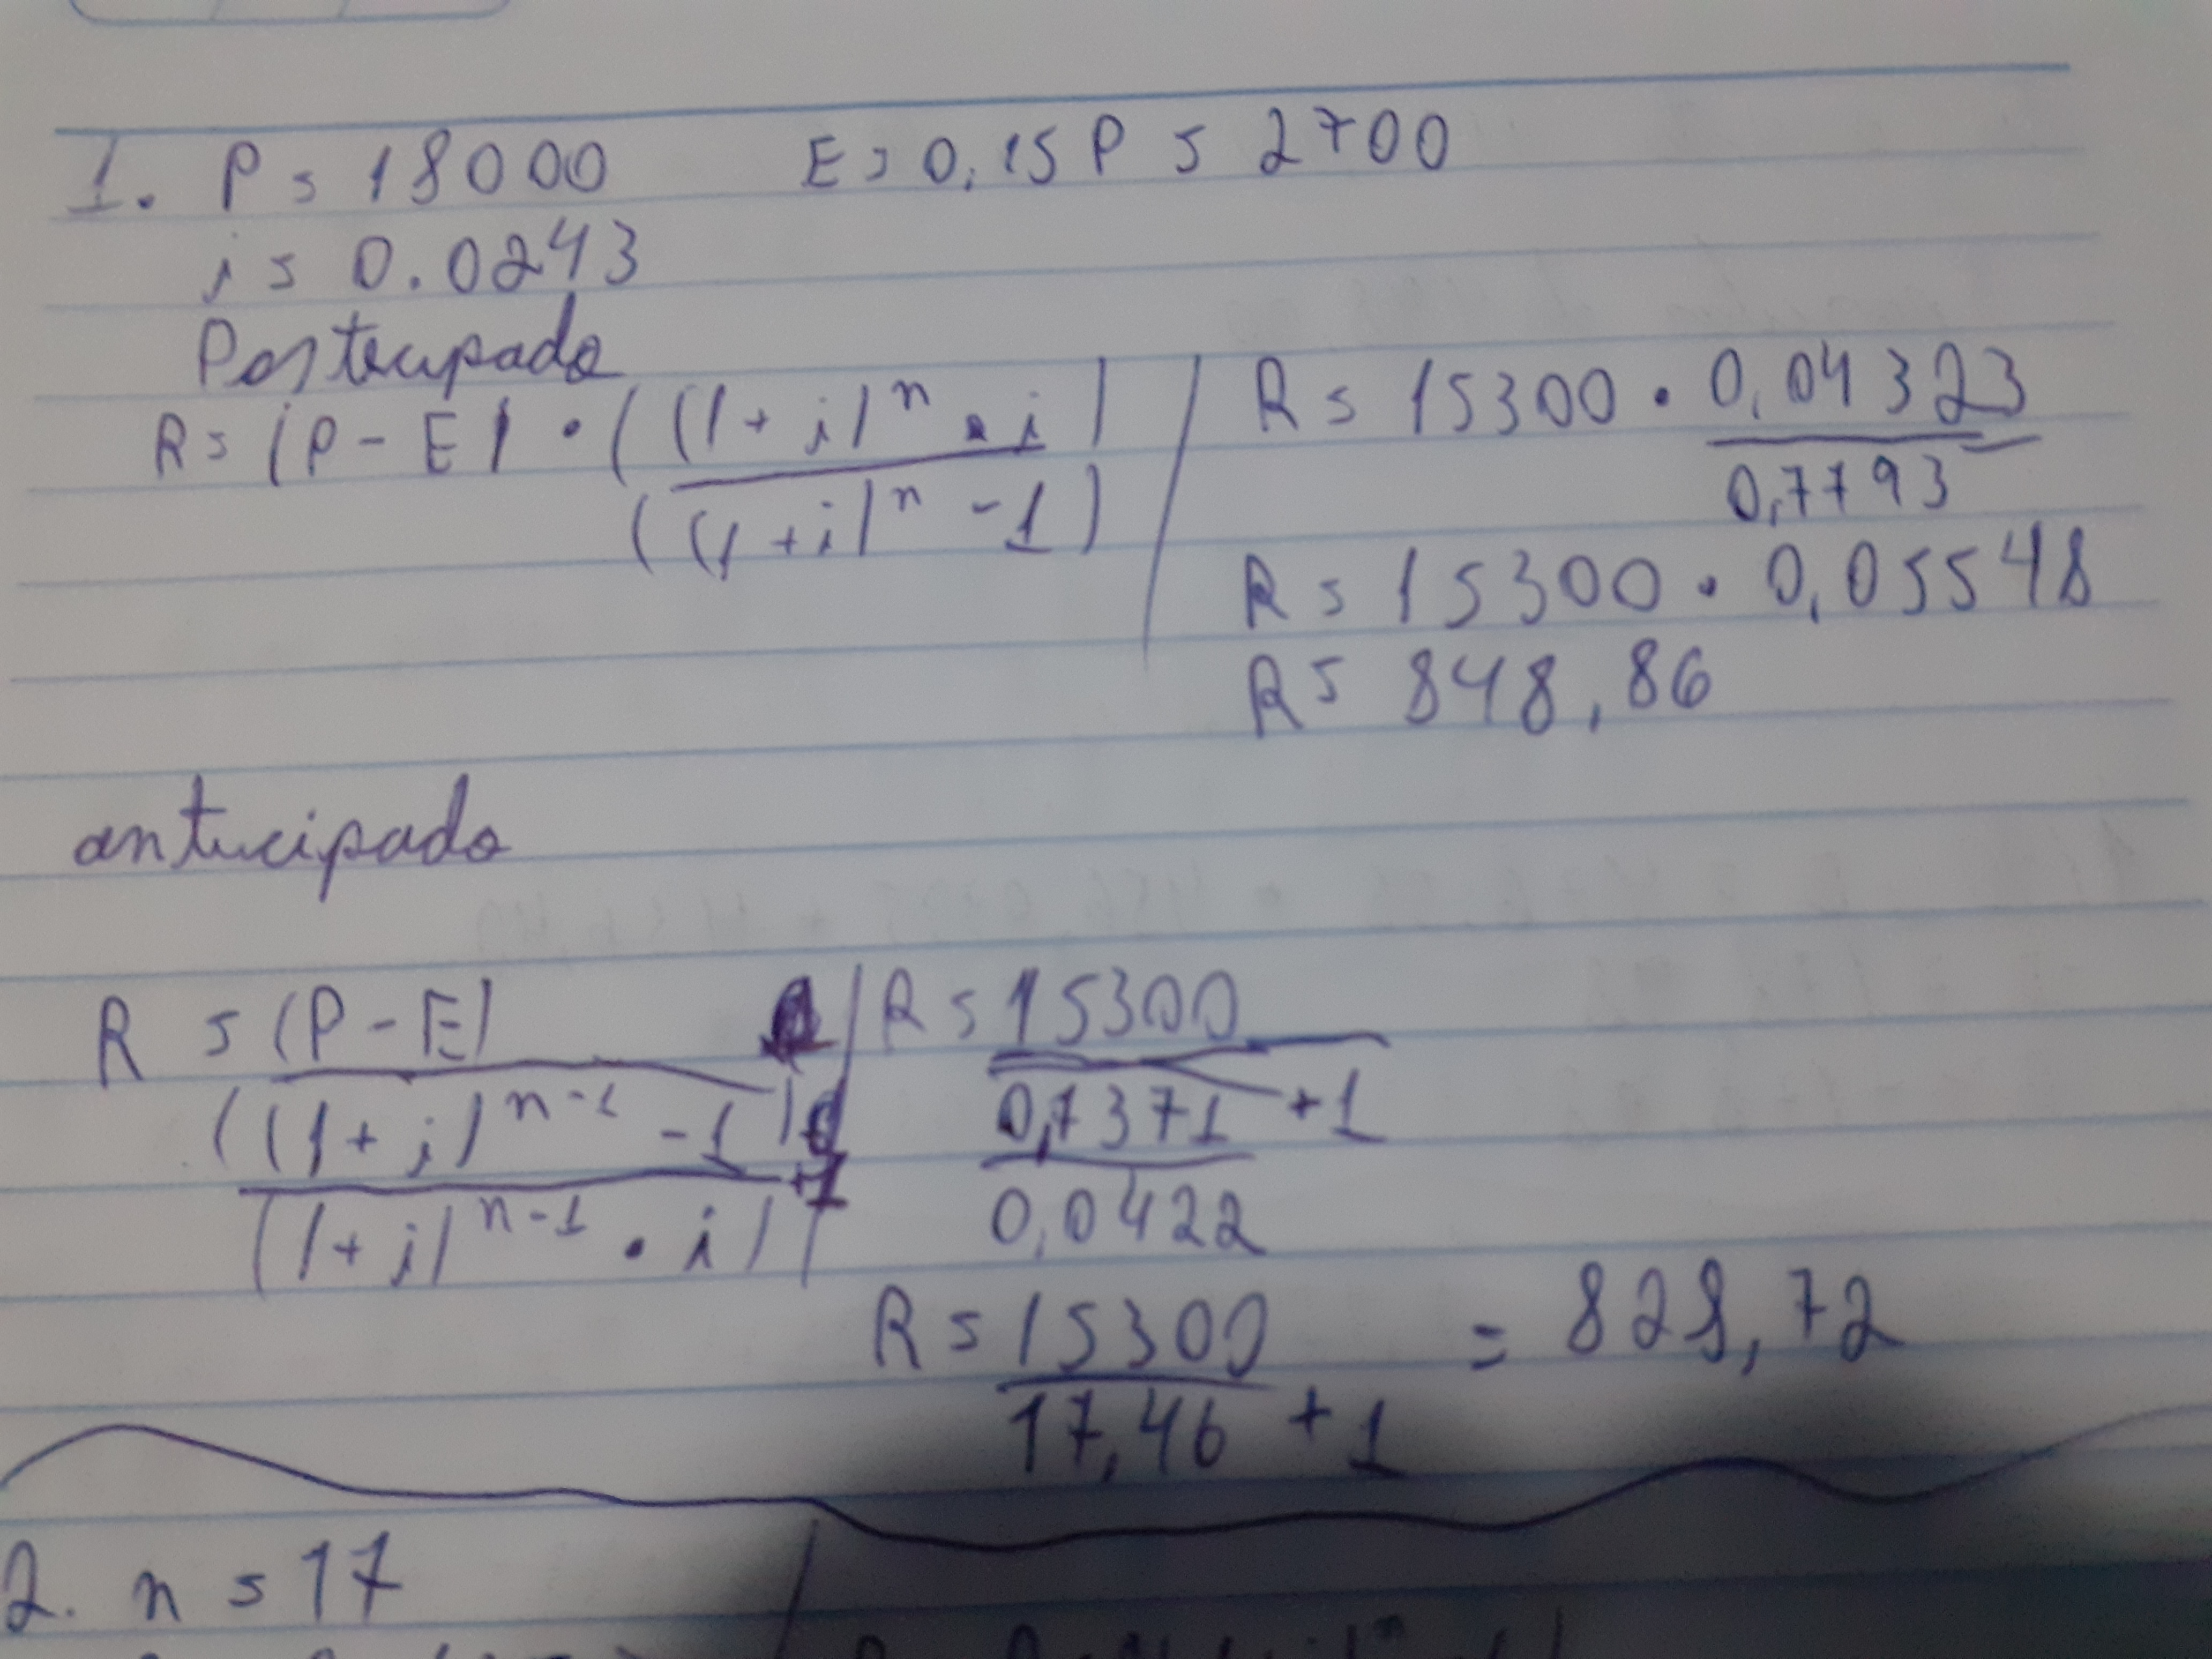 1. P = 18000 E = 0,15P = 2700
i = 0.0243
Postecipado
R = (P - E) · ((1 + i)^n · i)
((1 + i)^n - 1)
R = 15300 · 0,04323
0,7793
R = 15300 · 0,05548
R = 848,86
antecipado
R = (P - E)
((1 + i)^n-1 - 1) +1
(1 + i)^n-1 · i)
R = 15300
0,7371 +1
0,0422
R = 15300 = 828,72
17,46 + 1
2. n = 17